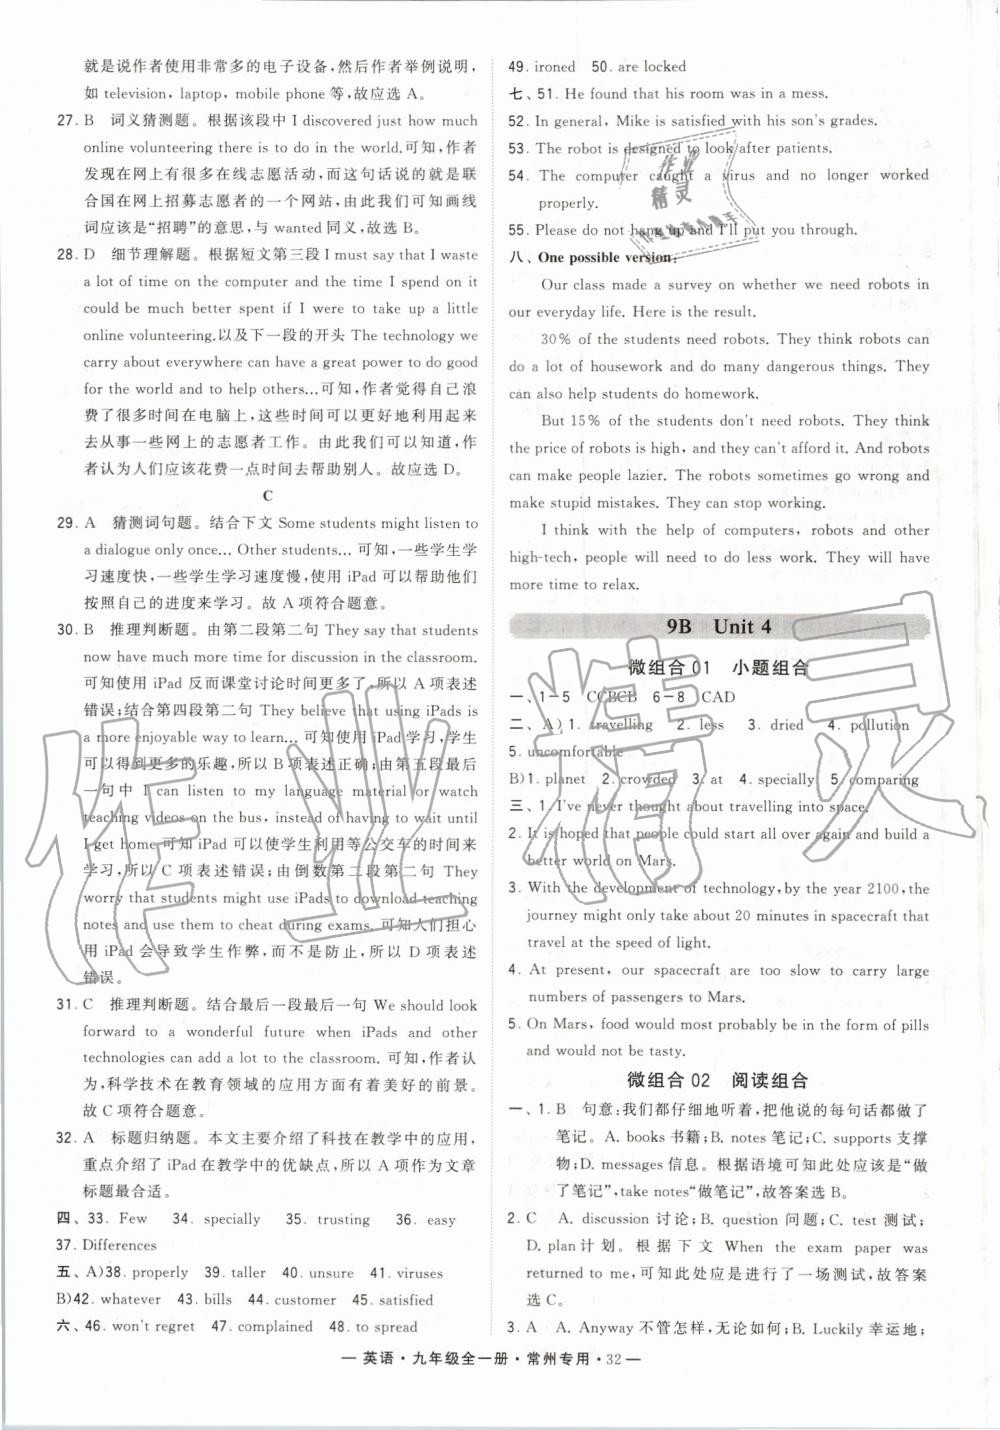 就是说作者使用非常多的电子设备,然后作者举例说明,
如 television, laptop, mobile phone 等,故应选 A。
27. B 词义猜测题。根据该段中 I discovered just how much
online volunteering there is to do in the world.可知,作者
发现在网上有很多在线志愿活动,而这句话说的就是联
合国在网上招募志愿者的一个网站,由此我们可知画线
词应该是“招聘”的意思,与 wanted 同义,故选 B。
28. D 细节理解题。根据短文第三段 I must say that I waste
a lot of time on the computer and the time I spend on it
could be much better spent if I were to take up a little
online volunteering.以及下一段的开头 The technology we
carry about everywhere can have a great power to do good
for the world and to help others...可知,作者觉得自己浪
费了很多时间在电脑上,这些时间可以更好地利用起来
去从事一些网上的志愿者工作。由此我们可以知道,作
者认为人们应该花费一点时间去帮助别人。故应选 D。
C
29. A 猜测词句题。结合下文 Some students might listen to
a dialogue only once... Other students... 可知,一些学生学
习速度快,一些学生学习速度慢,使用 iPad 可以帮助他们
按照自己的进度来学习。故 A 项符合题意。
30. B 推理判断题。由第二段第二句 They say that they
have much more time for discussion in the classroom.
可知使用 iPad 反而课堂讨论时间更多了,所以 A 项表述
错误;结合第四段第二句 They believe that using iPads is
a more enjoyable way to learn... 可知使用 iPad 学习,学生
可以得到更多的乐趣,所以 B 项表述正确;由第五段最后
一句中 I can listen to my language material or watch
teaching videos on the bus, instead of having to wait until
I get home 可知 iPad 可以使学生利用等公交车的时间来
学习,所以 C 项表述错误;由倒数第二段第二句 They
worry that students might use iPads to download teaching
notes and use them to cheat during exams. 可知人们担心
用 iPad 会导致学生作弊,而不是防止,所以 D 项表述
错误。
31. C 推理判断题。结合最后一段最后一句 We should look
forward to a wonderful future when iPads and other
technologies can add a lot to the classroom. 可知,作者认
为,科学技术在教育领域的应用方面有着美好的前景。
故 C 项符合题意。
32. A 标题归纳题。本文主要介绍了科技在教学中的应用,
重点介绍了 iPad 在教学中的优缺点,所以 A 项作为文章
标题最合适。
四、33. Few 34. specially 35. trusting 36. easy
37. Differences
五、A)38. properly 39. taller 40. unsure 41. viruses
B)42. whatever 43. bills 44. customer 45. satisfied
六、46. won't regret 47. complained 48. to spread
49. ironed 50. are locked
七、51. He found that his room was in a mess.
52. In general, Mike is satisfied with his son's grades.
53. The robot is designed to look after patients.
54. The computer caught a virus and no longer worked
properly.
55. Please do not hang up and I'll put you through.
八、One possible version:
Our class made a survey on whether we need robots in
our everyday life. Here is the result.
30% of the students need robots. They think robots can
do a lot of housework and do many dangerous things. They
can also help students do homework.
But 15% of the students don't need robots. They think
the price of robots is high, and they can't afford it. Robots
can make people lazier. The robots sometimes go wrong and
make stupid mistakes. They can stop working.
I think with the help of computers, robots and other
high-tech, people will need to do less work. They will have
more time to relax.
9B Unit 4
微组合 01 小题组合
一、1-5 CCBCB 6-8 CAD
二、A)1. travelling 2. less 3. dried 4. pollution
5. uncomfortable
B)1. planet 2. crowded 3. at 4. specially 5. comparing
三、1. I've never thought about travelling into space.
2. It is hoped that people could start all over again and build a
better world on Mars.
3. With the development of technology, by the year 2100, the
journey might only take about 20 minutes in spacecraft that
travel at the speed of light.
4. At present, our spacecraft are too slow to carry large
numbers of passengers to Mars.
5. On Mars, food would most probably be in the form of pills
and would not be tasty.
微组合 02 阅读组合
一、1. B 句意:我们都仔细地听着,把他说的每句话都做了
笔记。A. books 书籍;B. notes 笔记;C. supports 支撑
物;D. messages 信息。根据语境可知此处应该是“做
了笔记”,take notes“做笔记”,故答案选 B。
2. C A. discussion 讨论;B. question 问题;C. test 测试;
D. plan 计划。根据下文 When the exam paper was
returned to me,可知此处应是进行了一场测试,故答案
选 C。
3. A A. Anyway 不管怎样,无论如何;B. Luckily 幸运地;
英语·九年级全一册·常州专用·32
作业精灵
作业
精灵